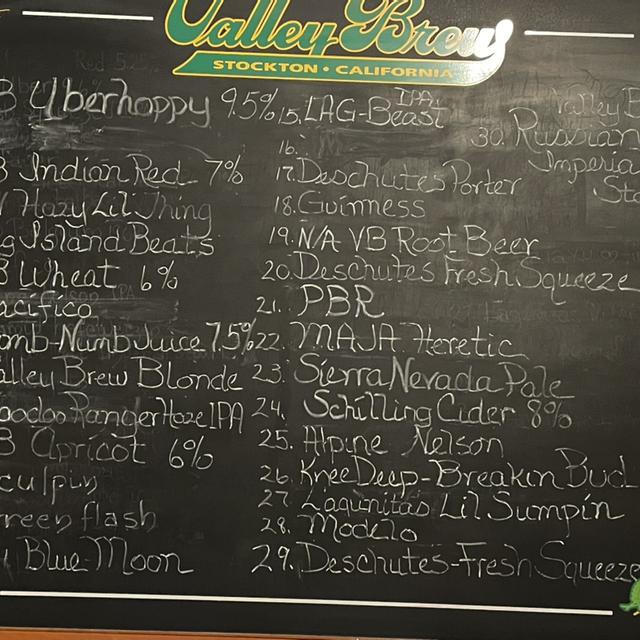 Valley Brew
STOCKTON • CALIFORNIA
B Uberhoppy 9.5%
B Indian Red 7%
Hazy Lil Thing
g Island Beats
B Wheat 6%
acífico
mb-NumbJuice 7.5%
alley Brew Blonde
oodoo Ranger Haze IPA
B Apricot 6%
culpin
reen flash
Blue Moon
15. LAG-Beast IPA
16.
17. Deschutes Porter
18. Guinness
19. N/A VB Root Beer
20. Deschutes Fresh Squeeze
21. PBR
22. MAJA Heretic
23. Sierra Nevada Pale
24. Schilling Cider 8%
25. Alpine Nelson
26. KneeDeep-Breakin Bud
27. Lagunitas Lil Sumpin
28. Modelo
29. Deschutes-Fresh Squeeze
Valley B
30. Russian
Imperia
Sto